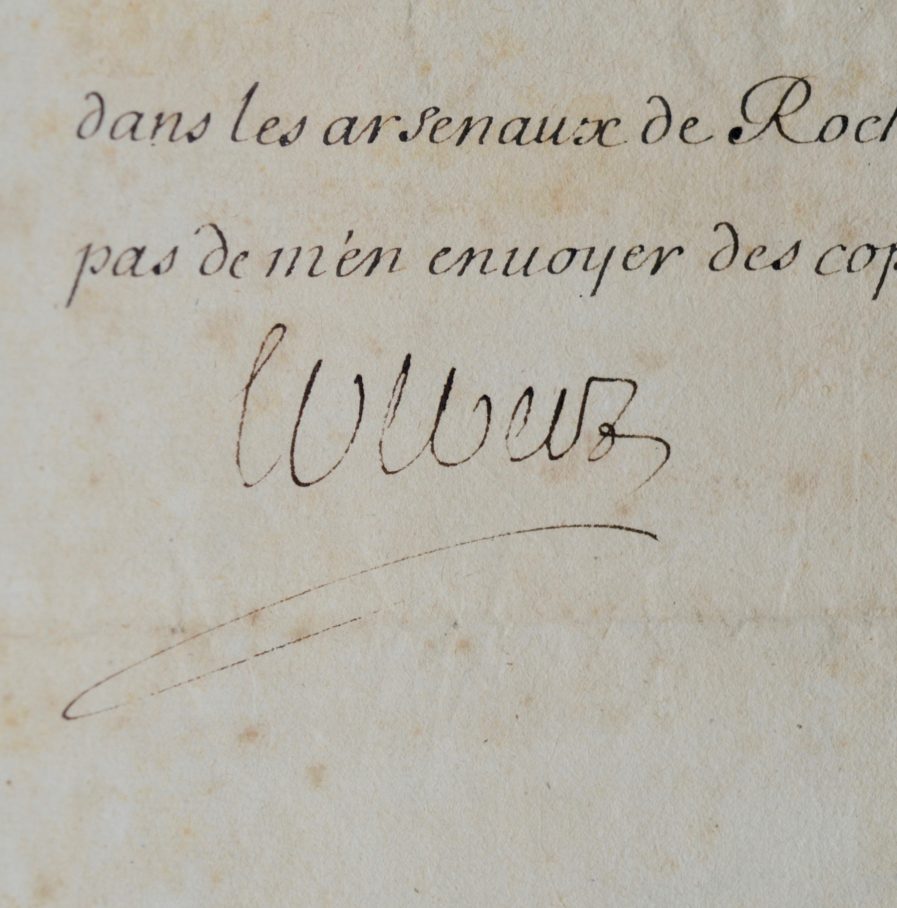 dans les arsenaux de Roch
pas de m'en enuoyer des cop
Colbert